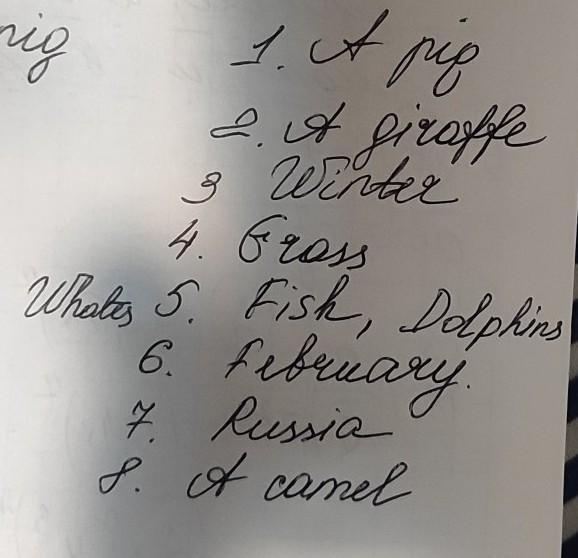 pig 1. A pig
2. A giraffe
3 Winter
4. Grass
Whales 5. Fish, Dolphins
6. February.
7. Russia
8. A camel